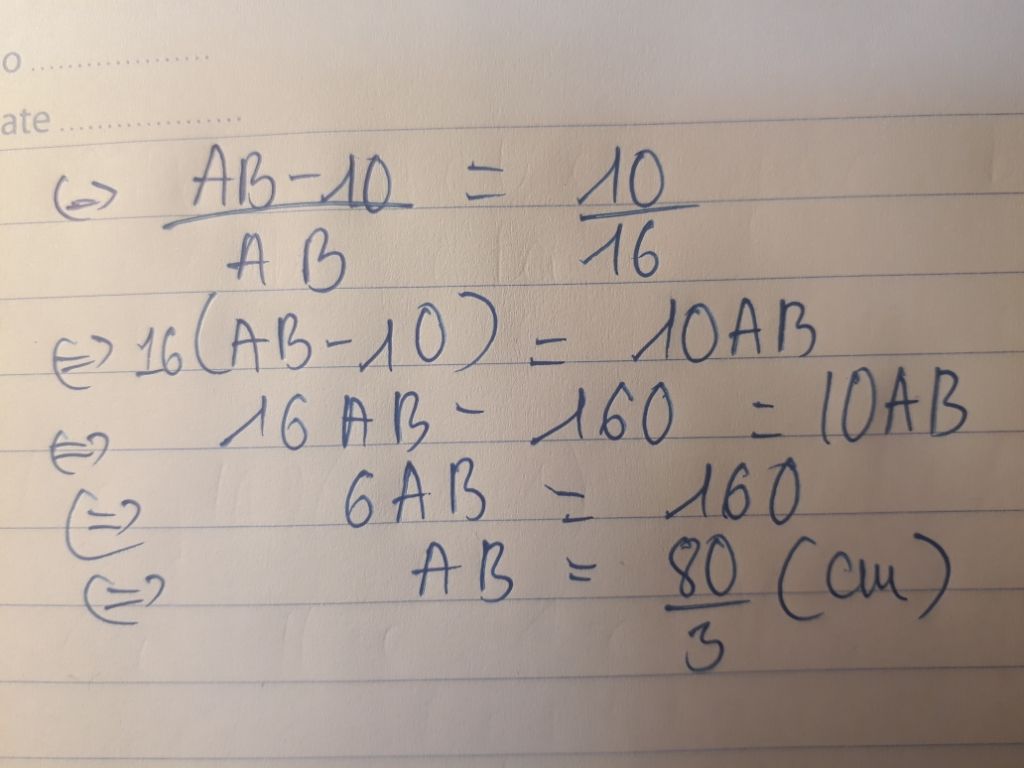 o ....................
ate ....................
⇔ (AB-10)/(AB) = 10/16
⇔ 16(AB-10) = 10AB
⇔ 16AB - 160 = 10AB
⇔ 6AB = 160
⇔ AB = 80/3 (cm)